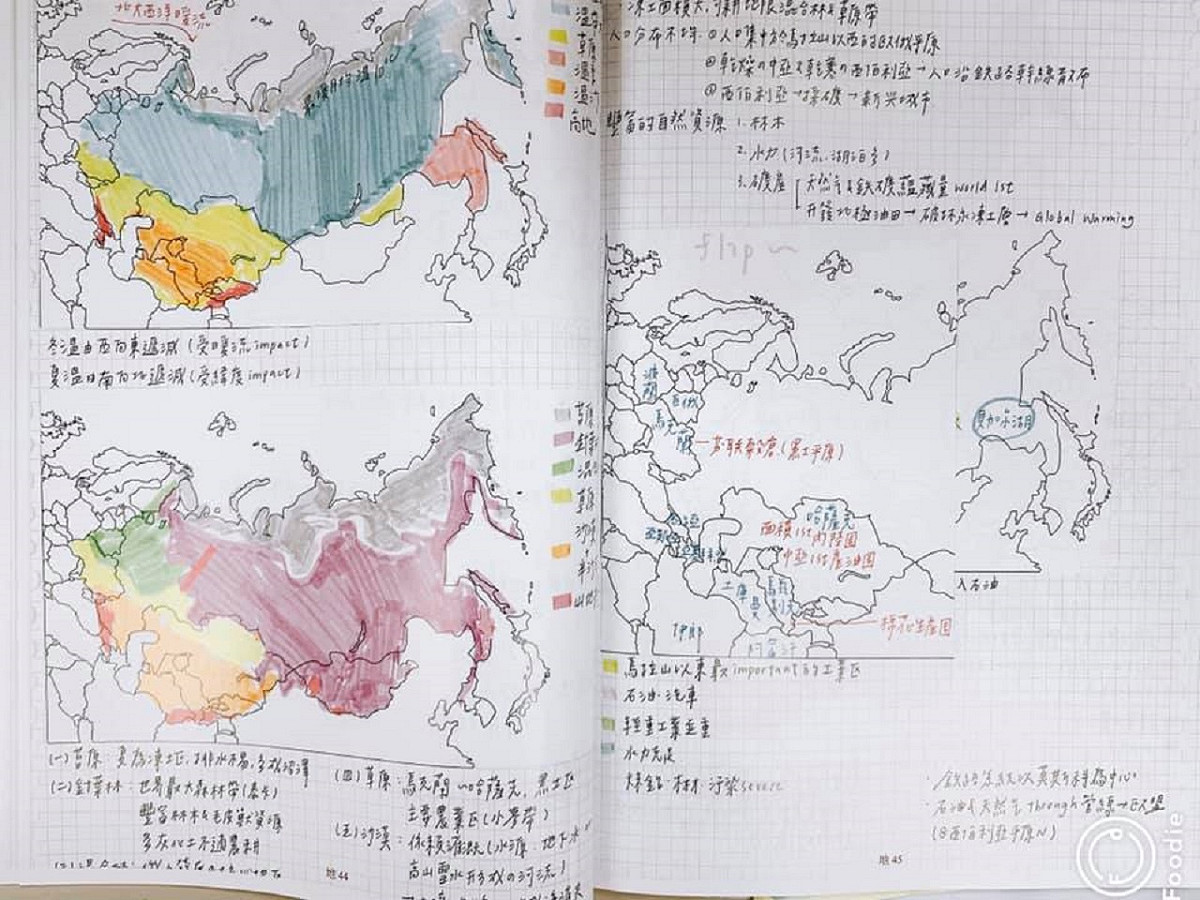 北大西洋暖流
草原
高地
最暖月均溫10°C
冬溫由西向東遞減（受暖流impact）
夏溫由南向北遞減（受緯度impact）
草原
沙漠
山地
(一)苔原：夏為凍土地，排水不易，多成沼澤
(二)針葉林：世界最大森林帶(泰卡)
豐富林木&毛皮獸資源
多灰化土不適農耕
(四)草原：烏克蘭～哈薩克，黑土區
主要農業區(小麥帶)
(五)沙漠：依賴灌溉(水源：地下水
高山雪水形成の河流)
地44
人口分布不均 ①人口集中於烏拉山以西的歐俄平原
②乾燥の中亞&乾寒の西伯利亞→人口沿鐵路幹線散布
③西伯利亞→採礦→新興城市
豐富的自然資源 1. 林木
2. 水力(河流、湖泊多)
3. 礦產 天然氣&鐵礦蘊藏量 world 1st
開鑿北極油田→破壞永凍土層→Global Warming
flip～
波蘭
白俄
烏克蘭
前蘇聯穀倉(黑土平原)
貝加爾湖
哈薩克
面積1st內陸國
中亞1st產油國
土庫曼
烏茲別克
棉花生產國
伊郎
阿富汗
入石油
烏拉山以東最important的工業區
石油、汽車
輕重工業並重
水力充足
煤、鉛、林木、汙染severe
・鐵路系統以莫斯科為中心
・石油&天然氣through管線→歐盟
(@西西伯利亞平原N)
地45
Foodie